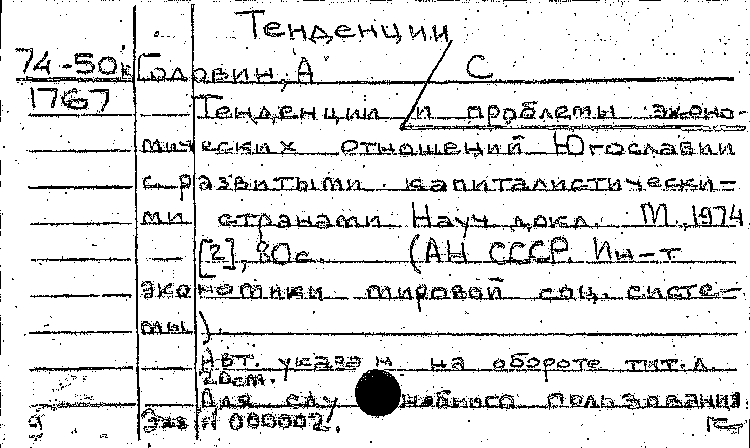 Тенденции
74-50к Головин, А С
1767 Тенденции и проблемы эконо-
мических отношений Югославии
с развитыми капиталистически-
ми странами Науч докл. М., 1974
[2], 80с. (АН СССР. Ин-т
экономики мировой соц. систе-
мы).
Авт. указан на обороте тит.л.
20см.
Для служебного пользования.
Экз N 000002.